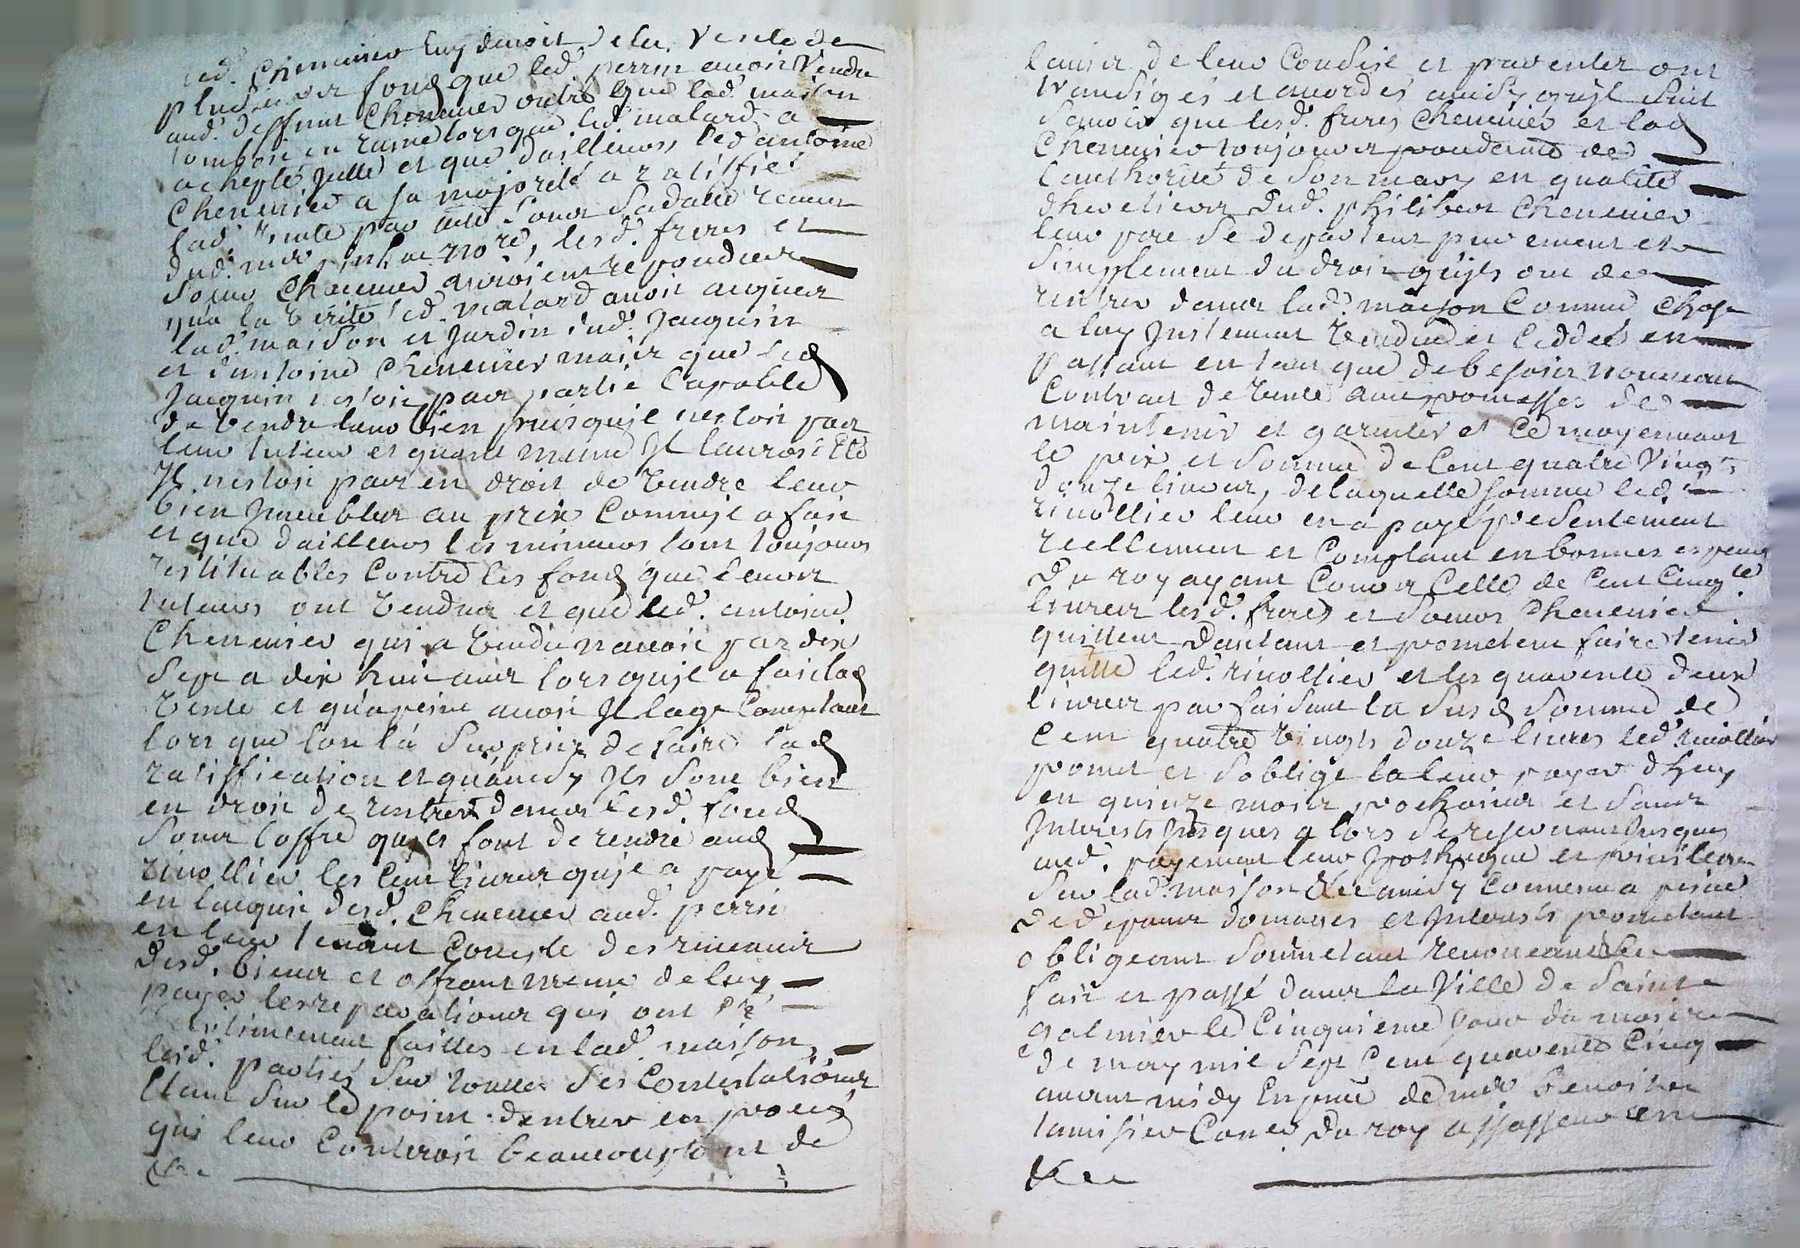 led. Chenevier luy devoit de la vente de
plusieurs fond que led. perrin avoit vendu
aud. deffunt Chenevier outre que lad. maison
tomboit en ruine lors que led. malard a
achepté Jcelle et que dailleurs led antoine
Chenevier a sa majorité a ratiffié
lad. vente par acte sous sa datte receu
dud. mr no.re, lesd. freres et
soeur Chenevier auroient repondu
qua la verité led. malard avoit acquis
lad. maison et Jardin dud. Jacquin
et dantoine Chenevier mais que led
Jacquin nestoit pas partie Capable
de vendre leur bien puisquil nestoit pas
leur tuteur et quant meme Jl lauroit été
Jl nestoit pas en droit de vendre leur
bien Jmeubles au prix Comme il a fait
et que dailleurs les mineurs sont toujours
restituables Contre les fond que leurs
tuteurs ont vendus et que led. antoine
Chenevier qui a vendu navoit pas dix
sept a dix huit ans lors quil a fait lad
vente et quapeine avoit Jl lage Competant
lors que lon la surpris de faire lad
ratiffication et quainsy Jls sont bien
en droit de rentrer dans lesd. fond
sous loffre quils font de rendre aud
rivollier les Cent livres quil a payé
en lacquit desd. Chenevier aud. perrin
en leur tenant Compte des revenus
desd. biens et offrant meme de luy
payer les reparations qui ont été
legitimement faittes en lad. maison
lesd. parties sur toutes ses Contestations
Etant sur le point dentrer en procès
qui leur Couteroit beaucoup ont de

lavis de leur Conseil et parentes ont
transigés et acordés ainsy quil suit
scavoir que lesd. freres Chenevier et lad
Chenevier toujours procedante de
lauthorité de son mary en qualité
dheretiers dud. philibert Chenevier
leur pere se departent purement et
simplement du droit quils ont de
rentrer dans lad. maison Comme chose
a luy Justement vendue et ceddée en
passant en tant que de besoin nouveau
Contract de vente avec promesses de
maintenir et garantir et Ce moyennant
le prix et somme de Cent quatre vingt
douze livres, de laquelle somme led
rivollier leur en a payé presentement
reellement et Comptant en bonnes especes
du roy ayant Cours Celle de Cent Cinq.te
livres lesd. freres et soeur Chenevier
quittent dautant et prometent faire tenir
quitte led. rivollier et les quarente deux
livres parfaisant la susd somme de
Cent quatre vingts douze livres led. rivollier
promet et soblige la leur payer dhuy
en quinze mois prochains et sans
Jnterests Jusques a lors se reservant Jusques
aud. payement leur Jpotheque et privilege
sur lad. maison Car ainsy Convenu a peine
de depans domages et Jnterests prometant
obligeant soumetant renonceant
fait et passé dans la Ville de Saint
galmier le Cinquieme Jour du mois
de may mil sept Cent quarente Cinq
avant midy En pnce de mr benoit
Con.er du roy assesseur en